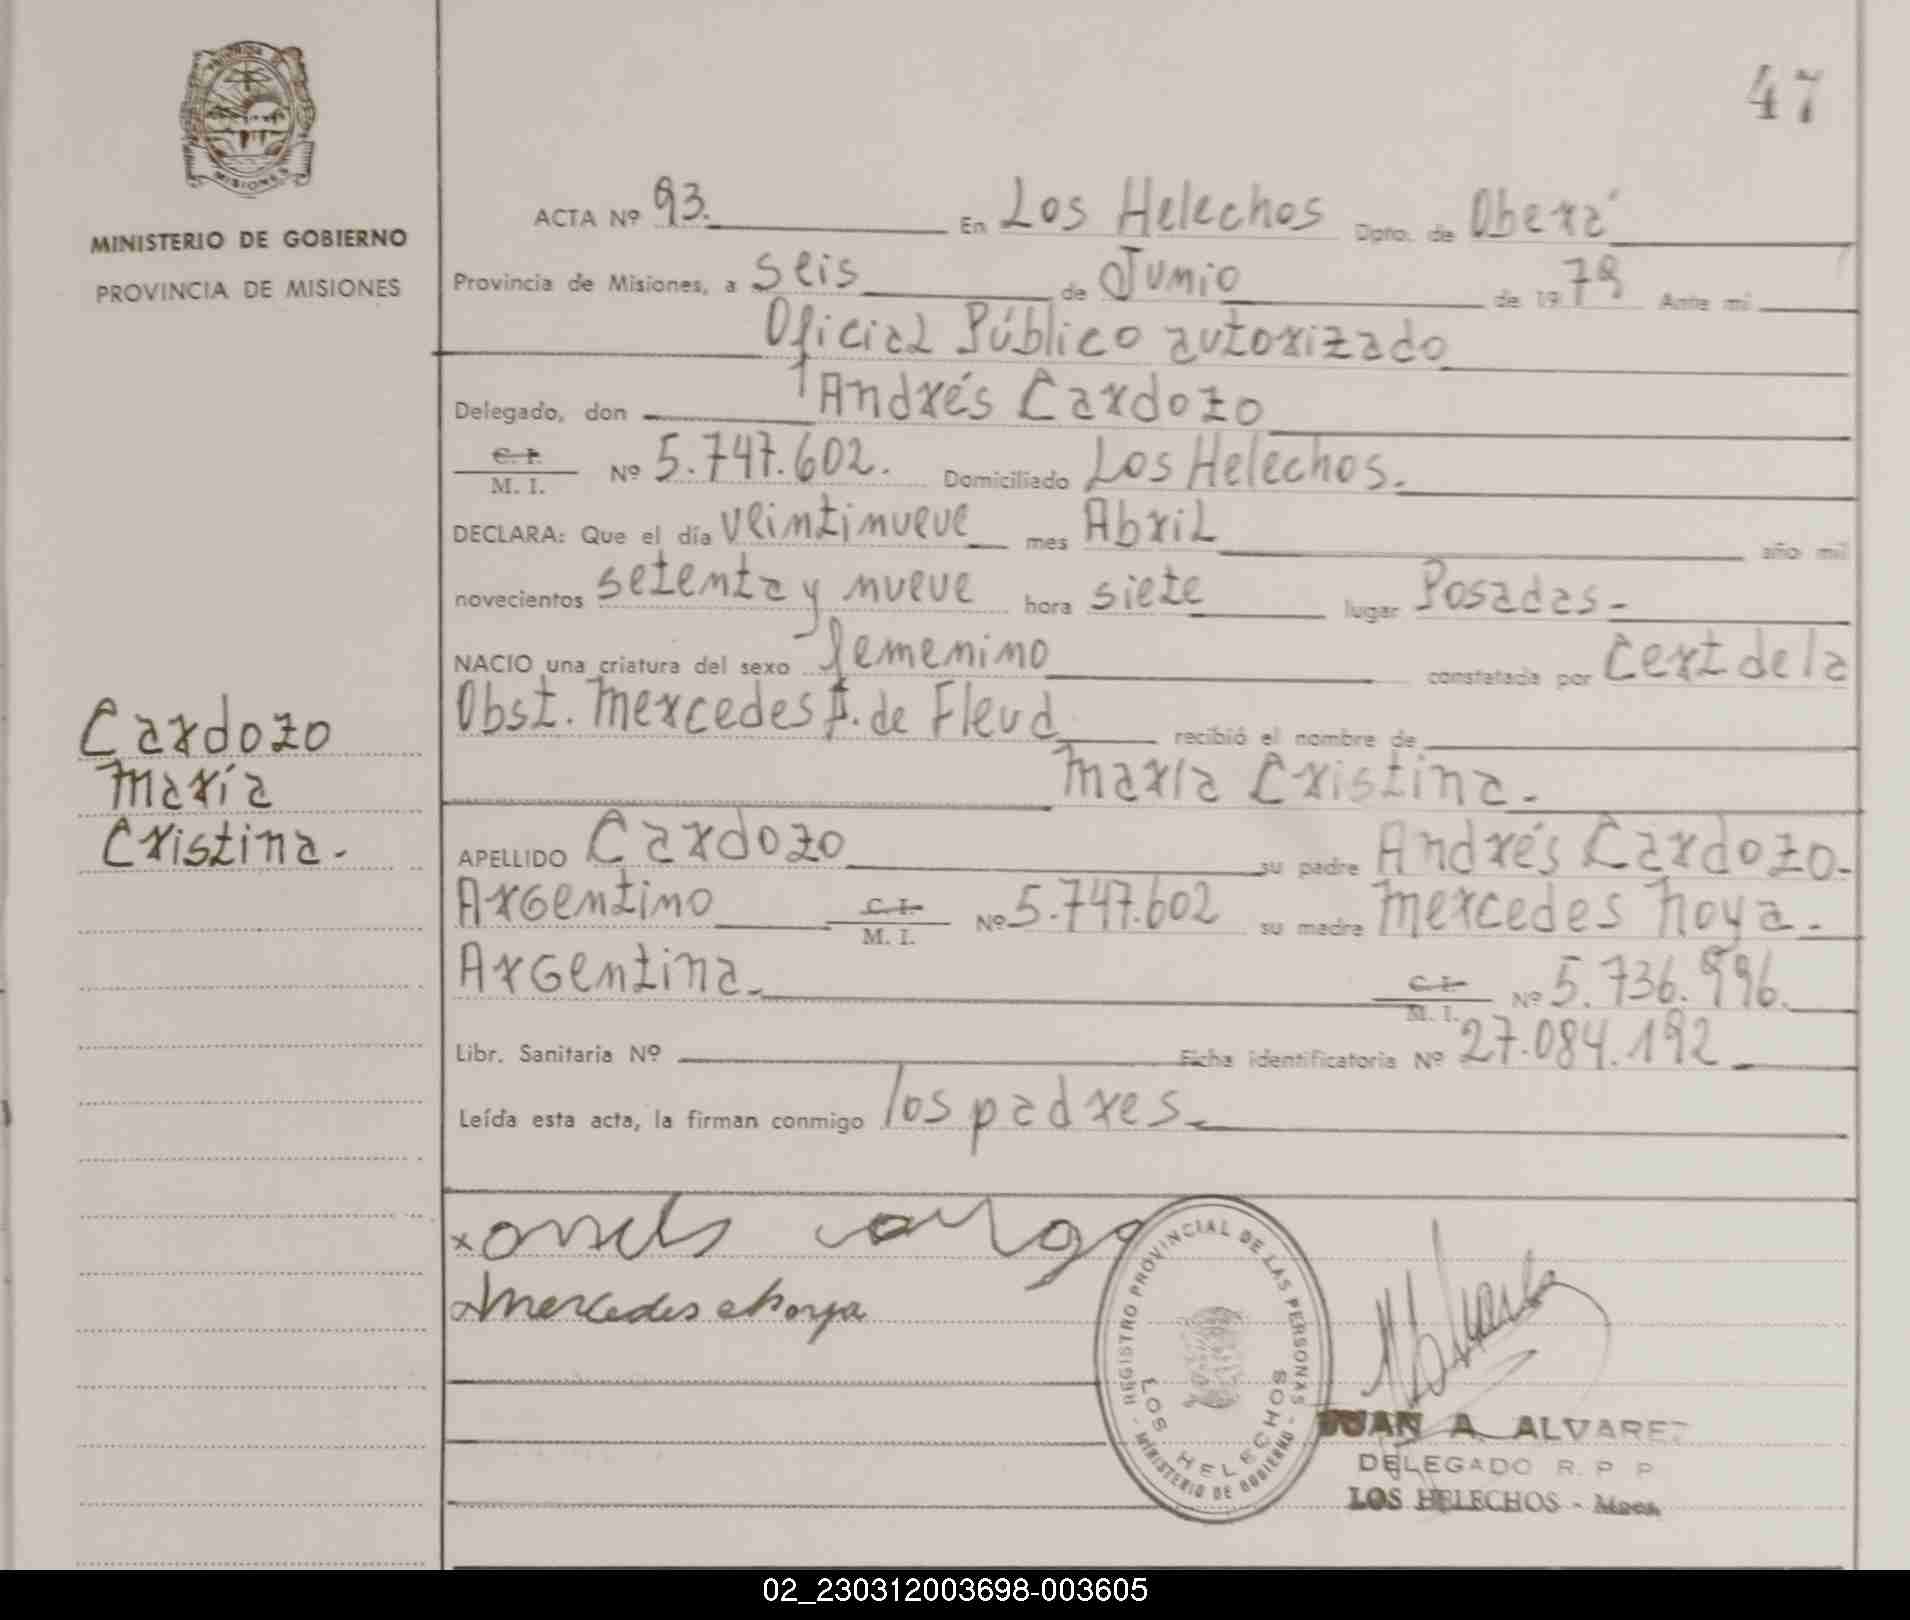 47
PROVINCIA DE
MISIONES
MINISTERIO DE GOBIERNO
PROVINCIA DE MISIONES
ACTA Nº 93. En Los Helechos Dpto. de Oberá
Provincia de Misiones, a seis de Junio de 1979 Ante mi
Oficial Público autorizado
Delegado, don Andrés Cardozo
C. I. Nº 5.747.602. Domiciliado Los Helechos.
M. I.
DECLARA: Que el día veintinueve mes Abril año mil
novecientos setenta y nueve hora siete lugar Posadas-
NACIO una criatura del sexo femenino constatada por Cert de la
Obst. Mercedes F. de Fleud recibió el nombre de
María Cristina.
Cardozo
María
Cristina.
APELLIDO Cardozo su padre Andrés Cardozo.
Argentino C. I. Nº 5.747.602 su madre Mercedes Noya.
M. I.
Argentina. C. I. Nº 5.736.996.
M. I.
Libr. Sanitaria Nº Ficha identificatoria Nº 27.084.192
Leída esta acta, la firman conmigo los padres.
x
Mercedes
REGISTRO PROVINCIAL DE LAS PERSONAS
LOS HELECHOS
- MINISTERIO DE GOBIERNO -
JUAN A. ALVAREZ
DELEGADO R. P. P.
LOS HELECHOS - Mnes.
02_230312003698-003605